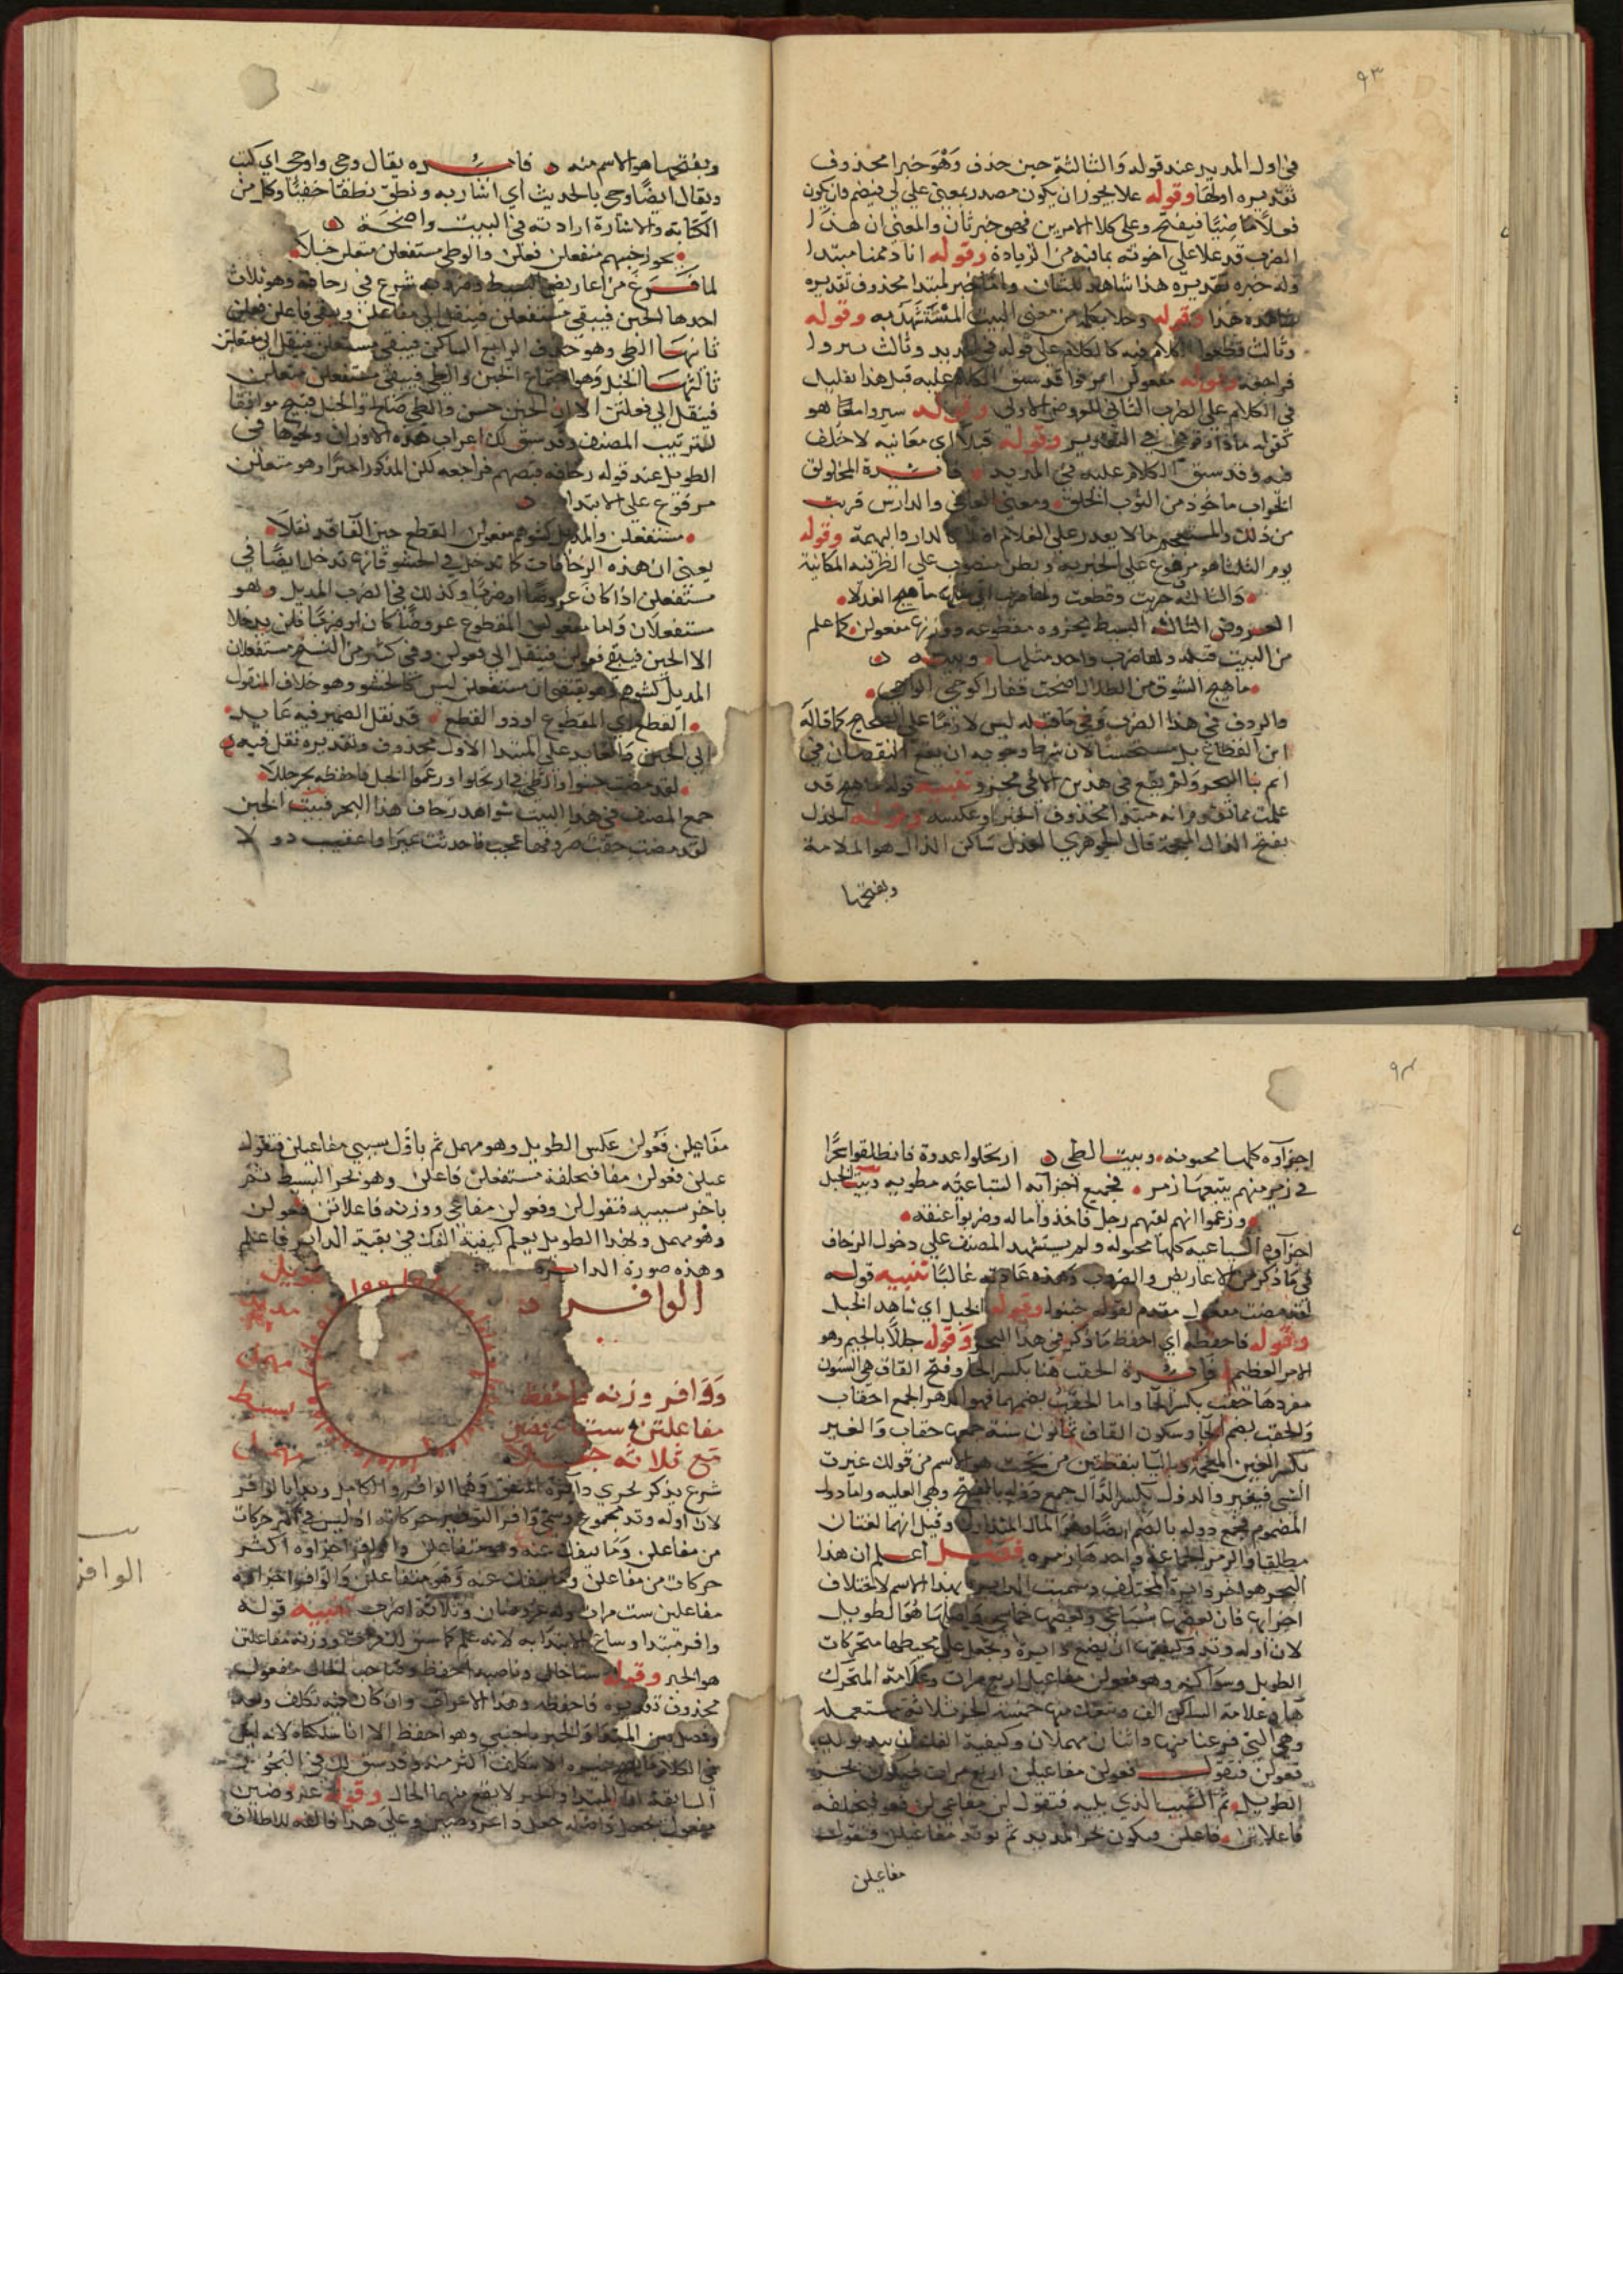 ٩٣
في اول المديد عند قوله والثالثة حين حذف وهو خبر محذوف
تقديره اولها وقوله علا يجوز ان يكون مصدر بمعنى علي لي فيضم وان يكون
فعلا ماضيا فيفتح وعلى كلا الامرين فهو خبر ثان والمعنى ان هذا
الضرب قد علا على اخوته بما فيه من الزيادة وقوله انا ذممنا مبتدا
وله خبره تقديره هذا شاهد للثان واما خبر لمبتدا محذوف تقديره
شاهده هذا وقوله وحلا بكلمة من معنى البيت المستشهد به وقوله
وثالث قطعوا الكلام فيه كالكلام على قوله في المديد وثالث بتروا
فراجعه وقوله مفعولن امر فوا قد سبق الكلام عليه قبل هذا بقليل
في الكلام على الضرب الثاني للعروض الاولى وقوله سيروا معا هو
كقوله ماذا وقوفي في التقدير وقوله قبلا اي معانيه لاختلف
فيه وقد سبق الكلام عليه في المديد فائدة المخلولق
الخراب ماخوذ من الثوب الخلق ومعنى العافي والدارس قريب
من ذلك والمستعجم ما لا يقدر على الكلام اصلا كالدار والبهيمة وقوله
يوم الثلثا هو مرفوع على الخبرية وبطن منصوب على الظرفية المكانية
والثالثة جزيت وقطعت ولها ضرب ما هيج العذلا
العروض الثالثة للبسيط مجزوه مقطوعه ووزنها مفعولن كما علم
من البيت قبله ولها ضرب واحد مثلها وبيته
ما هيج الشوق من اطلال اضحت قفارا كوحي الواحي
فالردف في هذا الضرب وفي ما قبله ليس لازما على الصحيح كما قاله
ابن القطاع بل مستحسنا لان شرط وجوبه ان يقع النقصان في
اتم بنا البحر ولم يقع في هذين الا في مجزو تنبيه قوله ما هيج قد
علمت مما تقدم انه مبتدا محذوف الخبر او عكسه وقوله العذل
بفتح الذال المعجمة قال الجوهري العذل ساكن الذال هو الملامة
وبفتحها
وبفتحها هو الاسم منه فائدة يقال وحي واوحي اي كتب
ويقال ايضا وحي بالحديث اي اشار به ونطق نطقا خفيا وكل من
الكتابة والاشارة ارادته في البيت واضحة
يجوز خبنهم متفعلن فعلن والطي مستفعلن متعلن خبلا
لما فرغ من اعاريض البسيط وضروبه شرع في زحافه وهو ثلاث
احدها الخبن فيبقى مستفعلن فينقل الى مفاعلن ويبقى فاعلن فعلن
ثانيها الطي وهو حذف الرابع الساكن فيبقى مستعلن فينقل الى مفتعلن
ثالثها الخبل وهو اجتماع الخبن والطي فيبقى مستفعلن متعلن
فينقل الى فعلتن الا ان الخبن حسن والطي صالح والخبل قبيح موافقا
لترتيب المصنف وقد سبق لك اعراب هذه الاوزان ونحوها في
الطويل عند قوله زحافه قبضهم فراجعه لكن المذكور اخيرا وهو متعلن
مرفوع على الابتدا
مستفعلن والمذيل كشوهم مفعولن القطع حين الفا قد نقلا
يعني ان هذه الزحافات كما تدخل في الحشو فانها تدخل ايضا في
مستفعلن اذا كان عروضا او ضربا وكذلك في الضرب المذيل وهو
مستفعلان واما مفعولن المقطوع عروضا كان او ضربا فلن يدخله
الا الخبن فيبقى فعولن فينقل الى فعولن وفي كثير من النسخ مستفعلان
المذيل كشوهم وهو يقتضي ان مستفعلن ليس كالحشو وهو خلاف المنقول
القطع اي المقطوع او ذو القطع قد نقل الضمير فيه عايد
الى الخبن والعايد على المبتدا الاول محذوف وتقديره نقل فيه
لقد مضت خبنوا والطي في ارتحلوا وزعموا الخبل فاحفظه بحر جللا
جمع المصنف في هذا البيت شواهد زحاف هذا البحر فبيت الخبن
لقد مضت حقب صروفها عجب فاحدثت غيرا واعقبت دولا
٩٤
اجزآوه كلها مخبونه وبيت الطي ارتحلوا غدوة فانطلقوا بكرا
في زمر منهم يتبعها زمر فجميع اجزآئه السباعيه مطويه وبيت الخبل
وزعموا انهم لقيهم رجل فاخذوا ماله وضربوا عنقه
اجزآوه السباعيه كلها مخبوله ولم يستشهد المصنف على دخول الزحاف
في ما ذكر من الاعاريض والضروب وهذه عادته غالبا تنبيه قوله
لقد مضت مفعول مقدم لقوله خبنوا وقوله الخبل اي شاهد الخبل
وقوله فاحفظه اي احفظ ما ذكر في هذا البحر وقوله جللا بالجيم وهو
الامر العظيم فائدة الحقب هنا بكسر الحا وفتح القاف هي السنون
مفردها حقب بكسر الحا واما الحقب بضمهما فهو الدهر والجمع احقاب
والحقب بضم الحا وسكون القاف ثمانون سنة جمعها حقاب والغير
بكسر الغين المعجمة وباليا بنقطتين من تحت هو الاسم من قولك غيرت
الشي فتغير والدول بكسر الدال جمع دولة بالفتح وهي الغلبه واما دول
المضموم فجمع دوله بالضم ايضا وهو المال المتداول وقيل انهما لغتان
مطلقا والزمر الجماعة واحدها زمره فصل اعلم ان هذا
البحر هو اخر دايرة المختلف وسميت الدايرة بهذا الاسم لاختلاف
اجزايها فان بعضها سباعي وبعضها خماسي واصلها هو الطويل
لان اوله وتد وكيفيتها ان يضع دايرة وتجعل على محيطها متحركات
الطويل وسواكنه وهو فعولن مفاعيلن اربع مرات وعلامة المتحرك
ها وعلامة الساكن الف ويتفك منها خمسة ابحر ثلاثة مستعمله
وهي التي فرغنا منها واثنان مهملان وكيفية الفك ان يبد بوتد
فعولن فيقول فعولن مفاعيلن اربع مرات فيكون بحر
الطويل ثم السبب الذي يليه فتقول لن مفاعي لن فعو فيخلفه
فاعلاتن فاعلن فيكون بحر المديد ثم بوتد مفاعيلن فتقول
مفاعيلن
مفاعيلن فعولن عكس الطويل وهو مهمل ثم باول سببي مفاعيلن فتقول
عيلن فعولن مفا فيخلفه مستفعلن فاعلن وهو بحر البسيط ثم
باخر سببيه فتقول لن وفعولن مفاعي ووزنه فاعلاتن فعولن
وهو مهمل ولهذا الطويل يعلم كيفية الفك في بقية الدايره فاعلم
وهذه صورة الدائرة
طويل
مديد
مهمل
بسيط
مهمل
الوافر
ووافر وزنه فاحفظ
مفاعلتن ستا عروضين
مع ثلاثة
شرع يذكر بحري دايرة المتفق وهما الوافر والكامل وبدا بالوافر
لان اوله وتد مجموع وسمي وافر التوفر حركاته اذ ليس في اكثر حركات
من مفاعلن وما ينفك عنه وهو متفاعلن والوافر اجزاوه اكثر
حركات من مفاعلن وما ينفك عنه وهو متفاعلن والوافر اجزاوه
مفاعلتن ست مرات وله عروضان وثلاثة اضرب تنبيه قوله
وافر مبتدا وساغ الابتدا به لانه علم كما سبق ووزنه مفاعلتن
هو الخبر وقوله ستا حال وناصبه احفظ وصاحب الحال مفعول
محذوف تقديره فاحفظه وهذا الاعراب وان كان فيه تكلف وبعد
وفصل بين المبتدا والخبر باجنبي وهو احفظ الا انا سلكناه لانه ليس
السابقة اما المبتدا والخبر لا يقع منهما الحال وقوله عروضين
مفعول بجعل واصله جعل ذا عروضين وعلى هذا فالفه للاطلاق
الوافر